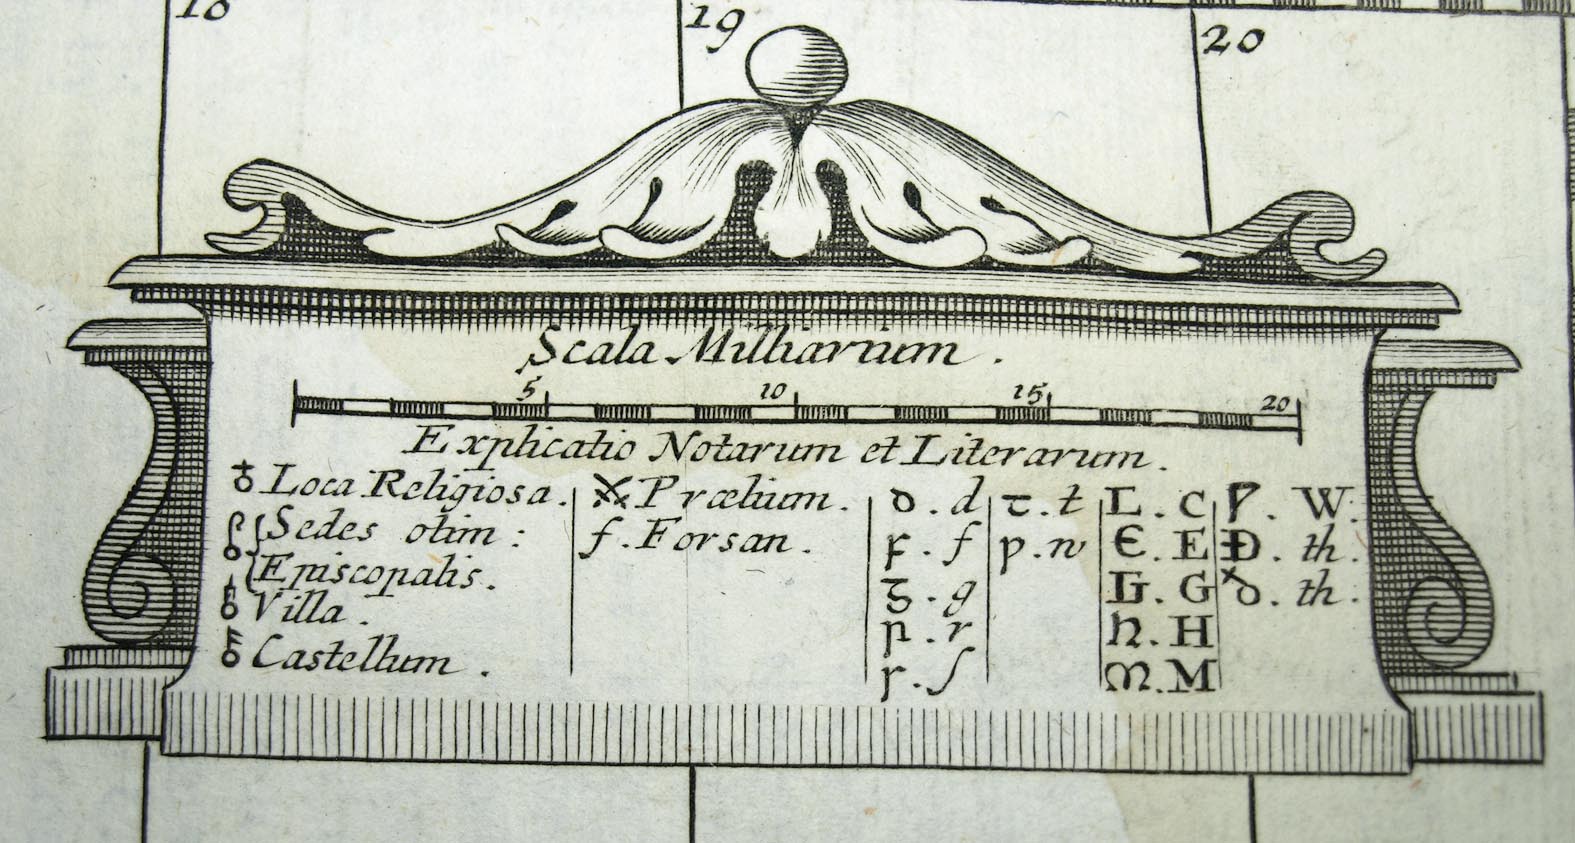 18 19 20
Scala Milliarium.
5 10 15 20
Explicatio Notarum et Literarum.
Loca Religiosa.
Sedes olim:
Episcopalis.
Villa.
Castellum.
Prælium.
f. Forsan.
ꝺ. d
ꝼ. f
ᵹ. g
ꞃ. r
ꞅ. ſ
ꞇ. t
ƿ. w
L. C
Є. E
Ᵹ. G
h. H
ᛖ. M
Ƿ. W.
Ð. th.
ð. th.